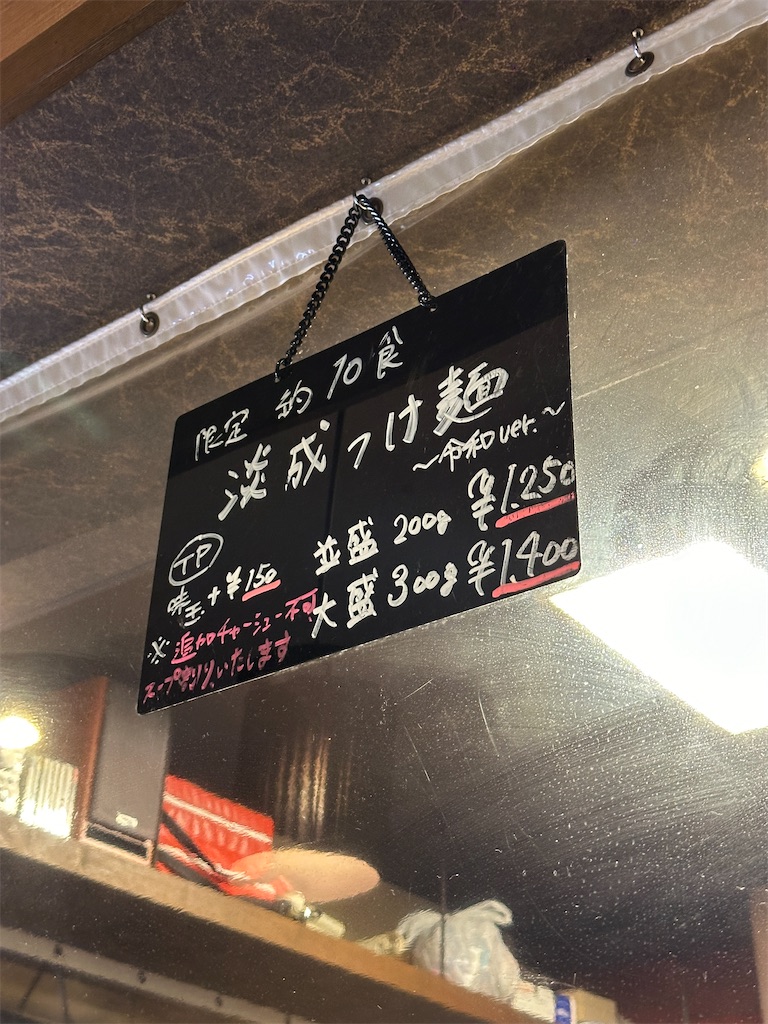 限定 約10食
淡成つけ麺
～令和ver.～
並盛 200g ¥1.250
大盛 300g ¥1.400
TP
味玉+¥150
※追加チャーシュー不可
スープ割り、いたします